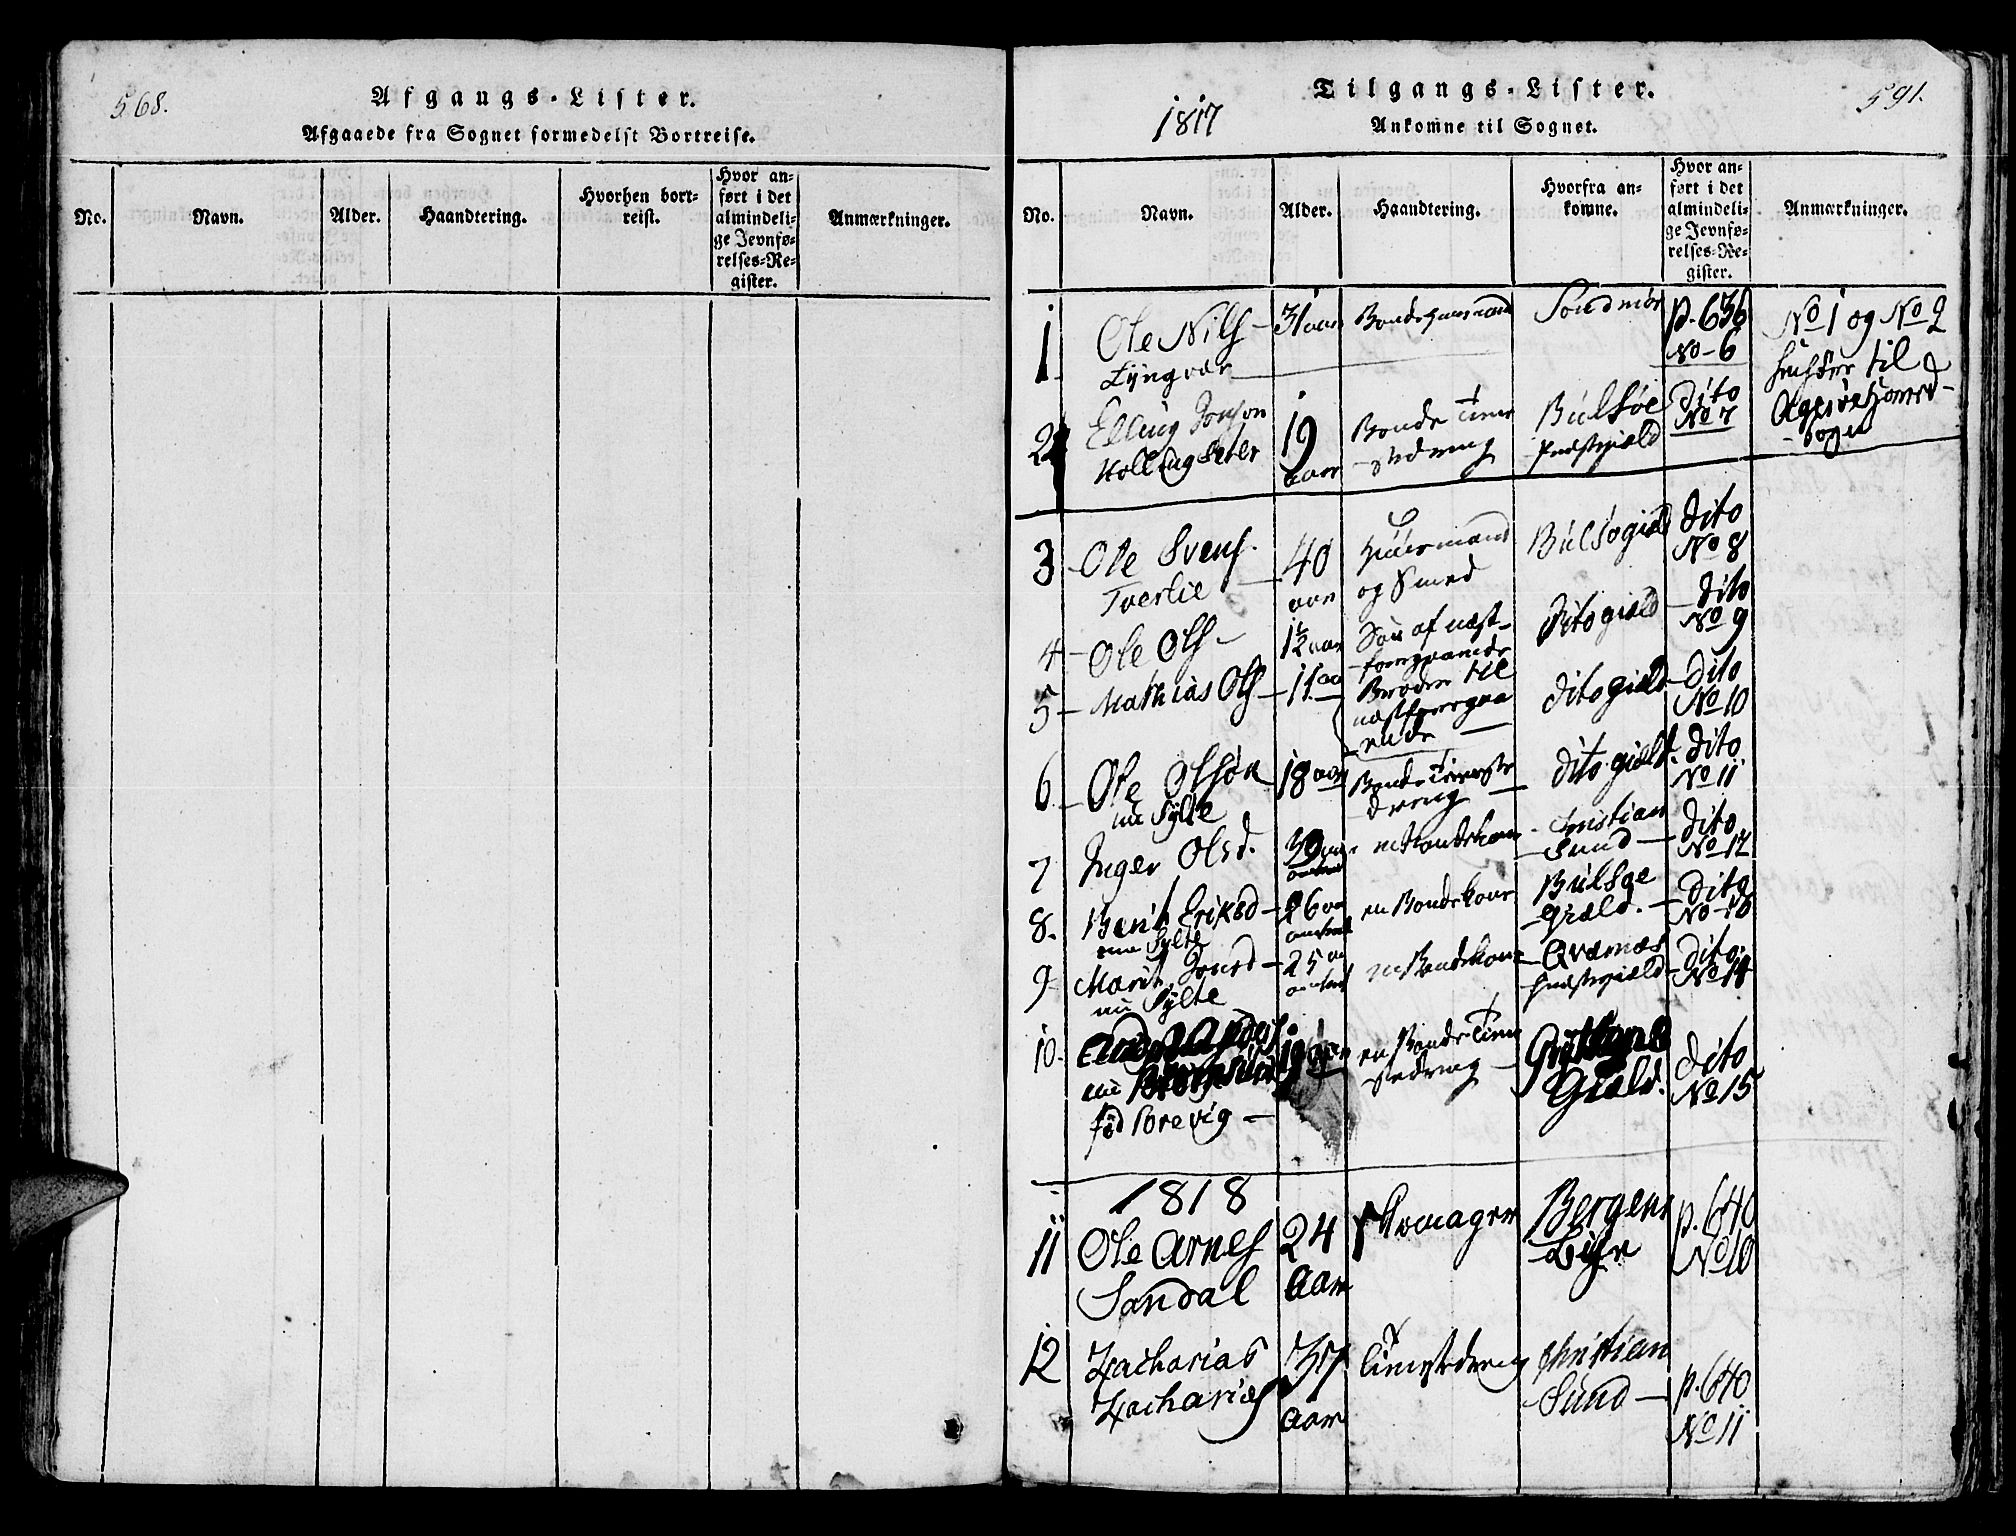 568.
Afgangs-Lister.
Afgaaede fra Sognet formedelst Bortreise.
No.
Navn.
Alder.
Haandtering.
Hvorhen bort-
reist.
Hvor an-
ført i det
almindeli-
ge Jevnfø-
relses-Re-
gister.
Anmærkninger.
1817
Tilgangs-Lister.
Ankomne til Sognet.
591.
No.
Navn.
Alder.
Haandtering.
Hvorfra an-
komne.
Hvor an-
ført i det
almindeli-
ge Jevnfø-
relses-Re-
gister.
Anmærkninger.
1
Ole Nils
Lyngvær
31 aar
Sondmør
p. 636
No 6
No 1 og No 2
til
2
Elling Jonson
19
aar
Bonde Tiene
stedreng
Bulsøe
Præstegield
Dito
No 7
3
Ole Svens.
Tverlie
40
aar
Huusmand
og Smed
Bulsøgield
dito
No 8
4
Ole Ols
1½ aar
Søn af næst
foregaaende
dito gield
dito
No 9
5
Mathias Ols
11 aar
Broder til
næstforegaa
ende
dito gield
dito
No 10
6
Ole Olsøn
nu Sylte
18 aar
Bonde Tieneste
dreng
dito gield
dito
No 11
7
Inger Olsd.
en Bondekone
Christian
Sund
dito
No 12
8.
Berit Eriksd
nu Sylte
26
en Bondekone
Bulsøe
gield.
dito
No 13
9
Marit Jonsd
nu Sylte
25
en Bondekone
Qværnæs
Præstegield
dito
No 14
10.
nu
fød Brevig
19
en Bonde Tiene
stedreng
Gield.
dito
No 15
1818
11
Ole Arnes
Sandal
24
aar
Skomager
Bergens
Bye
p. 640
No 10
12
Zacharias
Zacharias
37
aar
Tienestedreng
Christian
Sund
p. 640
No 11